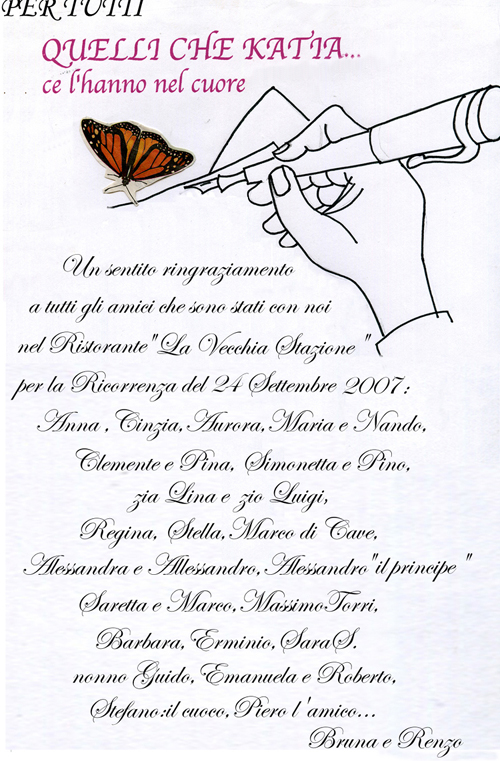 PER TUTTI
QUELLI CHE KATIA...
ce l'hanno nel cuore
Un sentito ringraziamento
a tutti gli amici che sono stati con noi
nel Ristorante "La Vecchia Stazione "
per la Ricorrenza del 24 Settembre 2007:
Anna , Cinzia, Aurora, Maria e Nando,
Clemente e Pina, Simonetta e Pino,
zia Lina e zio Luigi,
Regina, Stella, Marco di Cave,
Alessandra e Allessandro, Alessandro "il principe "
Saretta e Marco, Massimo Torri,
Barbara, Erminio, Sara S.
nonno Guido, Emanuela e Roberto,
Stefano: il cuoco, Piero l'amico...
Bruna e Renzo